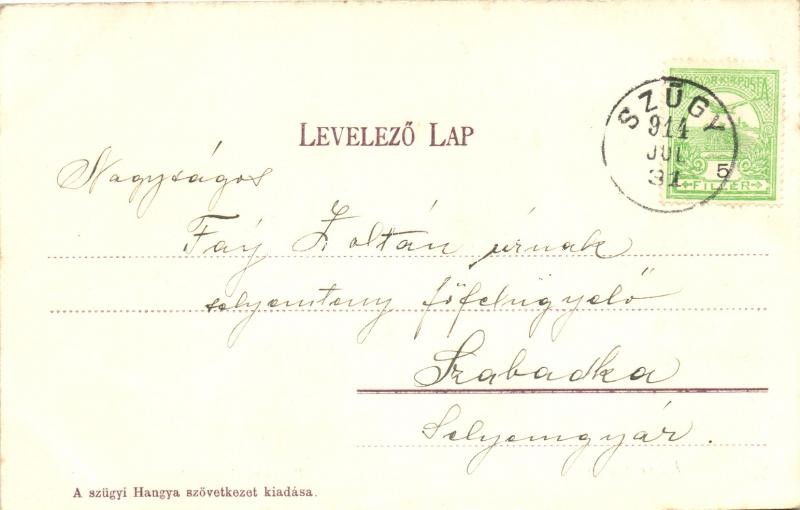 MAGYAR KIR. POSTA
SZÜGY
911
JUL
31
5
FILLÉR
LEVELEZŐ LAP
Nagyságos
Fáy Zoltán úrnak
selyemteny főfelügyelő
Szabadka
Selyemgyár.
A szügyi Hangya szövetkezet kiadása.